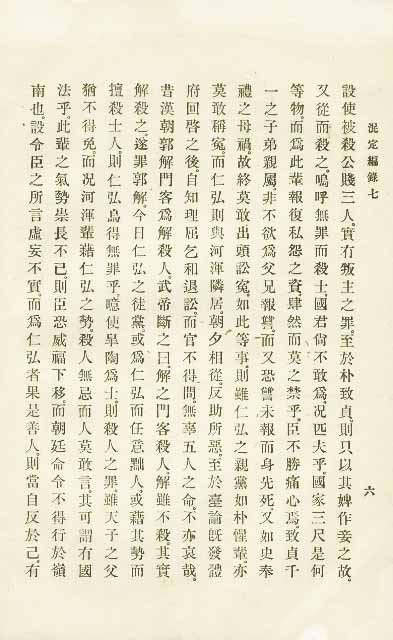 混定編錄七
六
設使被殺公賤三人。實有叛主之罪。至於朴致貞。則只以其婢作妾之故。
又從而殺之。嗚呼無罪而殺士。國君尙不敢爲。况匹夫乎。國家三尺是何
等物。而爲此輩報復私怨之資。肆然而莫之禁乎。臣不勝痛心焉。致貞千
一之子弟親屬。非不欲爲父兄報讐。而又恐讐未報而身先死。又如史奉
禮之母禍。故終莫敢出頭訟寃。如此等事。則雖仁弘之親黨如朴惺輩。亦
莫敢稱寃。而仁弘則與河渾隣居。朝夕相從。反助所惡。至於臺論旣發。體
府回啓之後。自知理屈。乞和退訟。而官不得問。無辜五人之命。不亦哀哉。
昔漢朝郭解門客爲解殺人。武帝斷之曰。解之門客殺人。解雖不殺。其實
解殺之。遂罪郭解。今日仁弘之徒黨。或爲仁弘而任意黜人。或藉其勢而
擅殺士人。則仁弘烏得無罪乎。噫使皐陶爲士。則殺人之罪。雖天子之父
猶不得免。而况河渾輩藉仁弘之勢。殺人無忌。而人莫敢言。其可謂有國
法乎。此輩之氣勢崇長不已。則臣恐威福下移。而朝廷命令不得行於嶺
南也。設令臣之所言虛妄不實。而爲仁弘者果是善人。則當自反於己。有